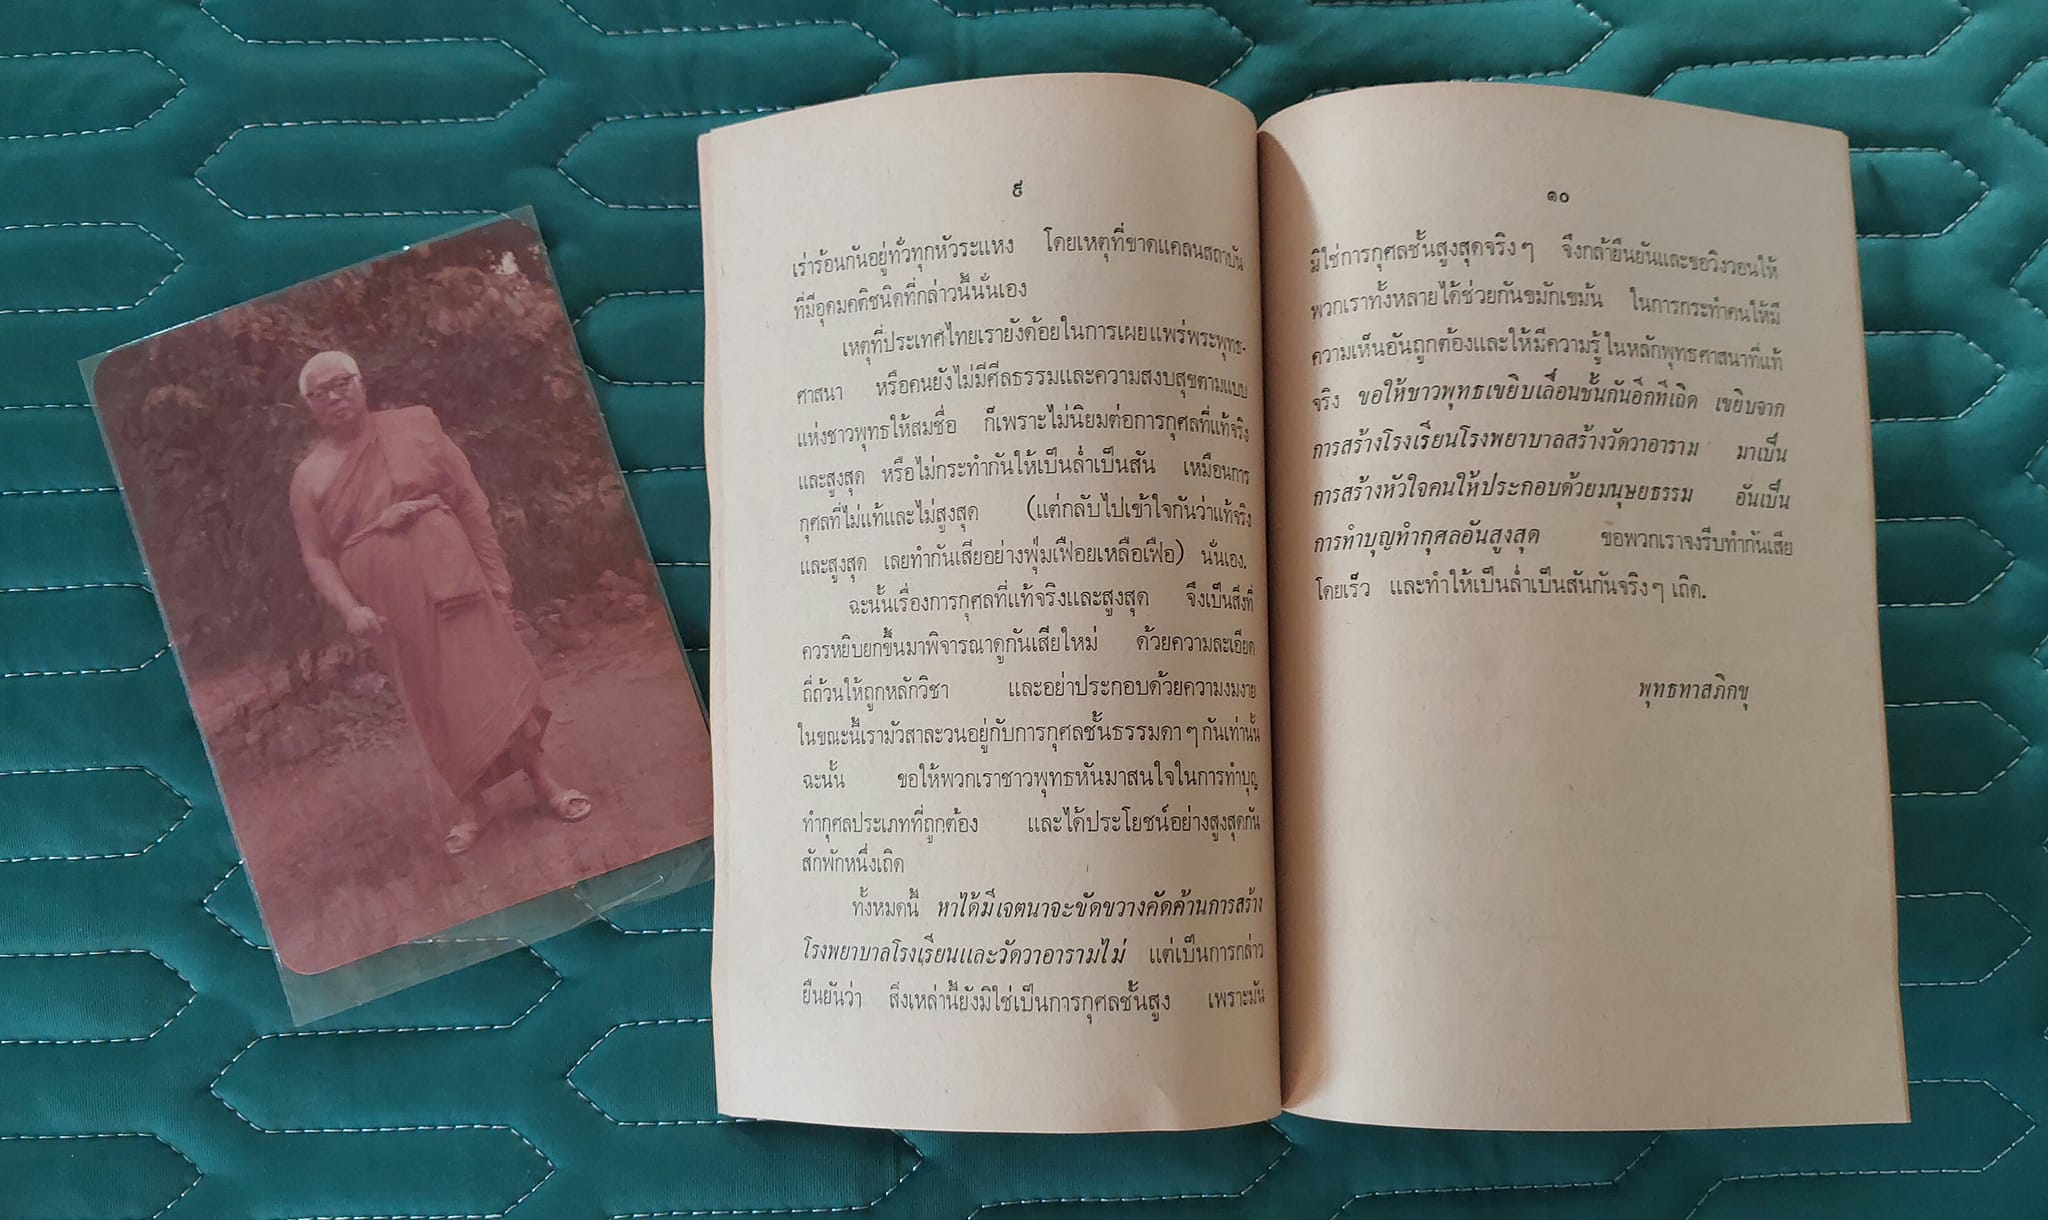 ๙
เร่าร้อนกันอยู่ทั่วทุกหัวระแหง โดยเหตุที่ขาดแคลนสถาบัน
ที่มีอุดมคติชนิดที่กล่าวนี้นั่นเอง
เหตุที่ประเทศไทยเรายังด้อยในการเผยแพร่พระพุทธ-
ศาสนา หรือคนยังไม่มีศีลธรรมและความสงบสุขตามแบบ
แห่งชาวพุทธให้สมชื่อ ก็เพราะไม่นิยมต่อการกุศลที่แท้จริง
และสูงสุด หรือไม่กระทำกันให้เป็นล่ำเป็นสัน เหมือนการ
กุศลที่ไม่แท้และไม่สูงสุด (แต่กลับไปเข้าใจกันว่าแท้จริง
และสูงสุด เลยทำกันเสียอย่างฟุ่มเฟือยเหลือเฟือ) นั่นเอง.
ฉะนั้นเรื่องการกุศลที่แท้จริงและสูงสุด จึงเป็นสิ่งที่
ควรหยิบยกขึ้นมาพิจารณาดูกันเสียใหม่ ด้วยความละเอียด
ถี่ถ้วนให้ถูกหลักวิชา และอย่าประกอบด้วยความงมงาย
ในขณะนี้เรามัวสาละวนอยู่กับการกุศลชั้นธรรมดา ๆ กันเท่านั้น
ฉะนั้น ขอให้พวกเราชาวพุทธหันมาสนใจในการทำบุญ
ทำกุศลประเภทที่ถูกต้อง และได้ประโยชน์อย่างสูงสุดกัน
สักพักหนึ่งเถิด
ทั้งหมดนี้ หาได้มีเจตนาจะขัดขวางคัดค้านการสร้าง
โรงพยาบาลโรงเรียนและวัดวาอารามไม่ แต่เป็นการกล่าว
ยืนยันว่า สิ่งเหล่านี้ยังมิใช่เป็นการกุศลชั้นสูง เพราะมัน
๑๐
มิใช่การกุศลชั้นสูงสุดจริง ๆ จึงกล้ายืนยันและขอวิงวอนให้
พวกเราทั้งหลายได้ช่วยกันขมักเขม้น ในการกระทำคนให้มี
ความเห็นอันถูกต้องและให้มีความรู้ในหลักพุทธศาสนาที่แท้
จริง ขอให้ชาวพุทธเขยิบเลื่อนชั้นกันอีกทีเถิด เขยิบจาก
การสร้างโรงเรียนโรงพยาบาลสร้างวัดวาอาราม มาเป็น
การสร้างหัวใจคนให้ประกอบด้วยมนุษยธรรม อันเป็น
การทำบุญทำกุศลอันสูงสุด ขอพวกเราจงรีบทำกันเสีย
โดยเร็ว และทำให้เป็นล่ำเป็นสันกันจริง ๆ เถิด.
พุทธทาสภิกขุ